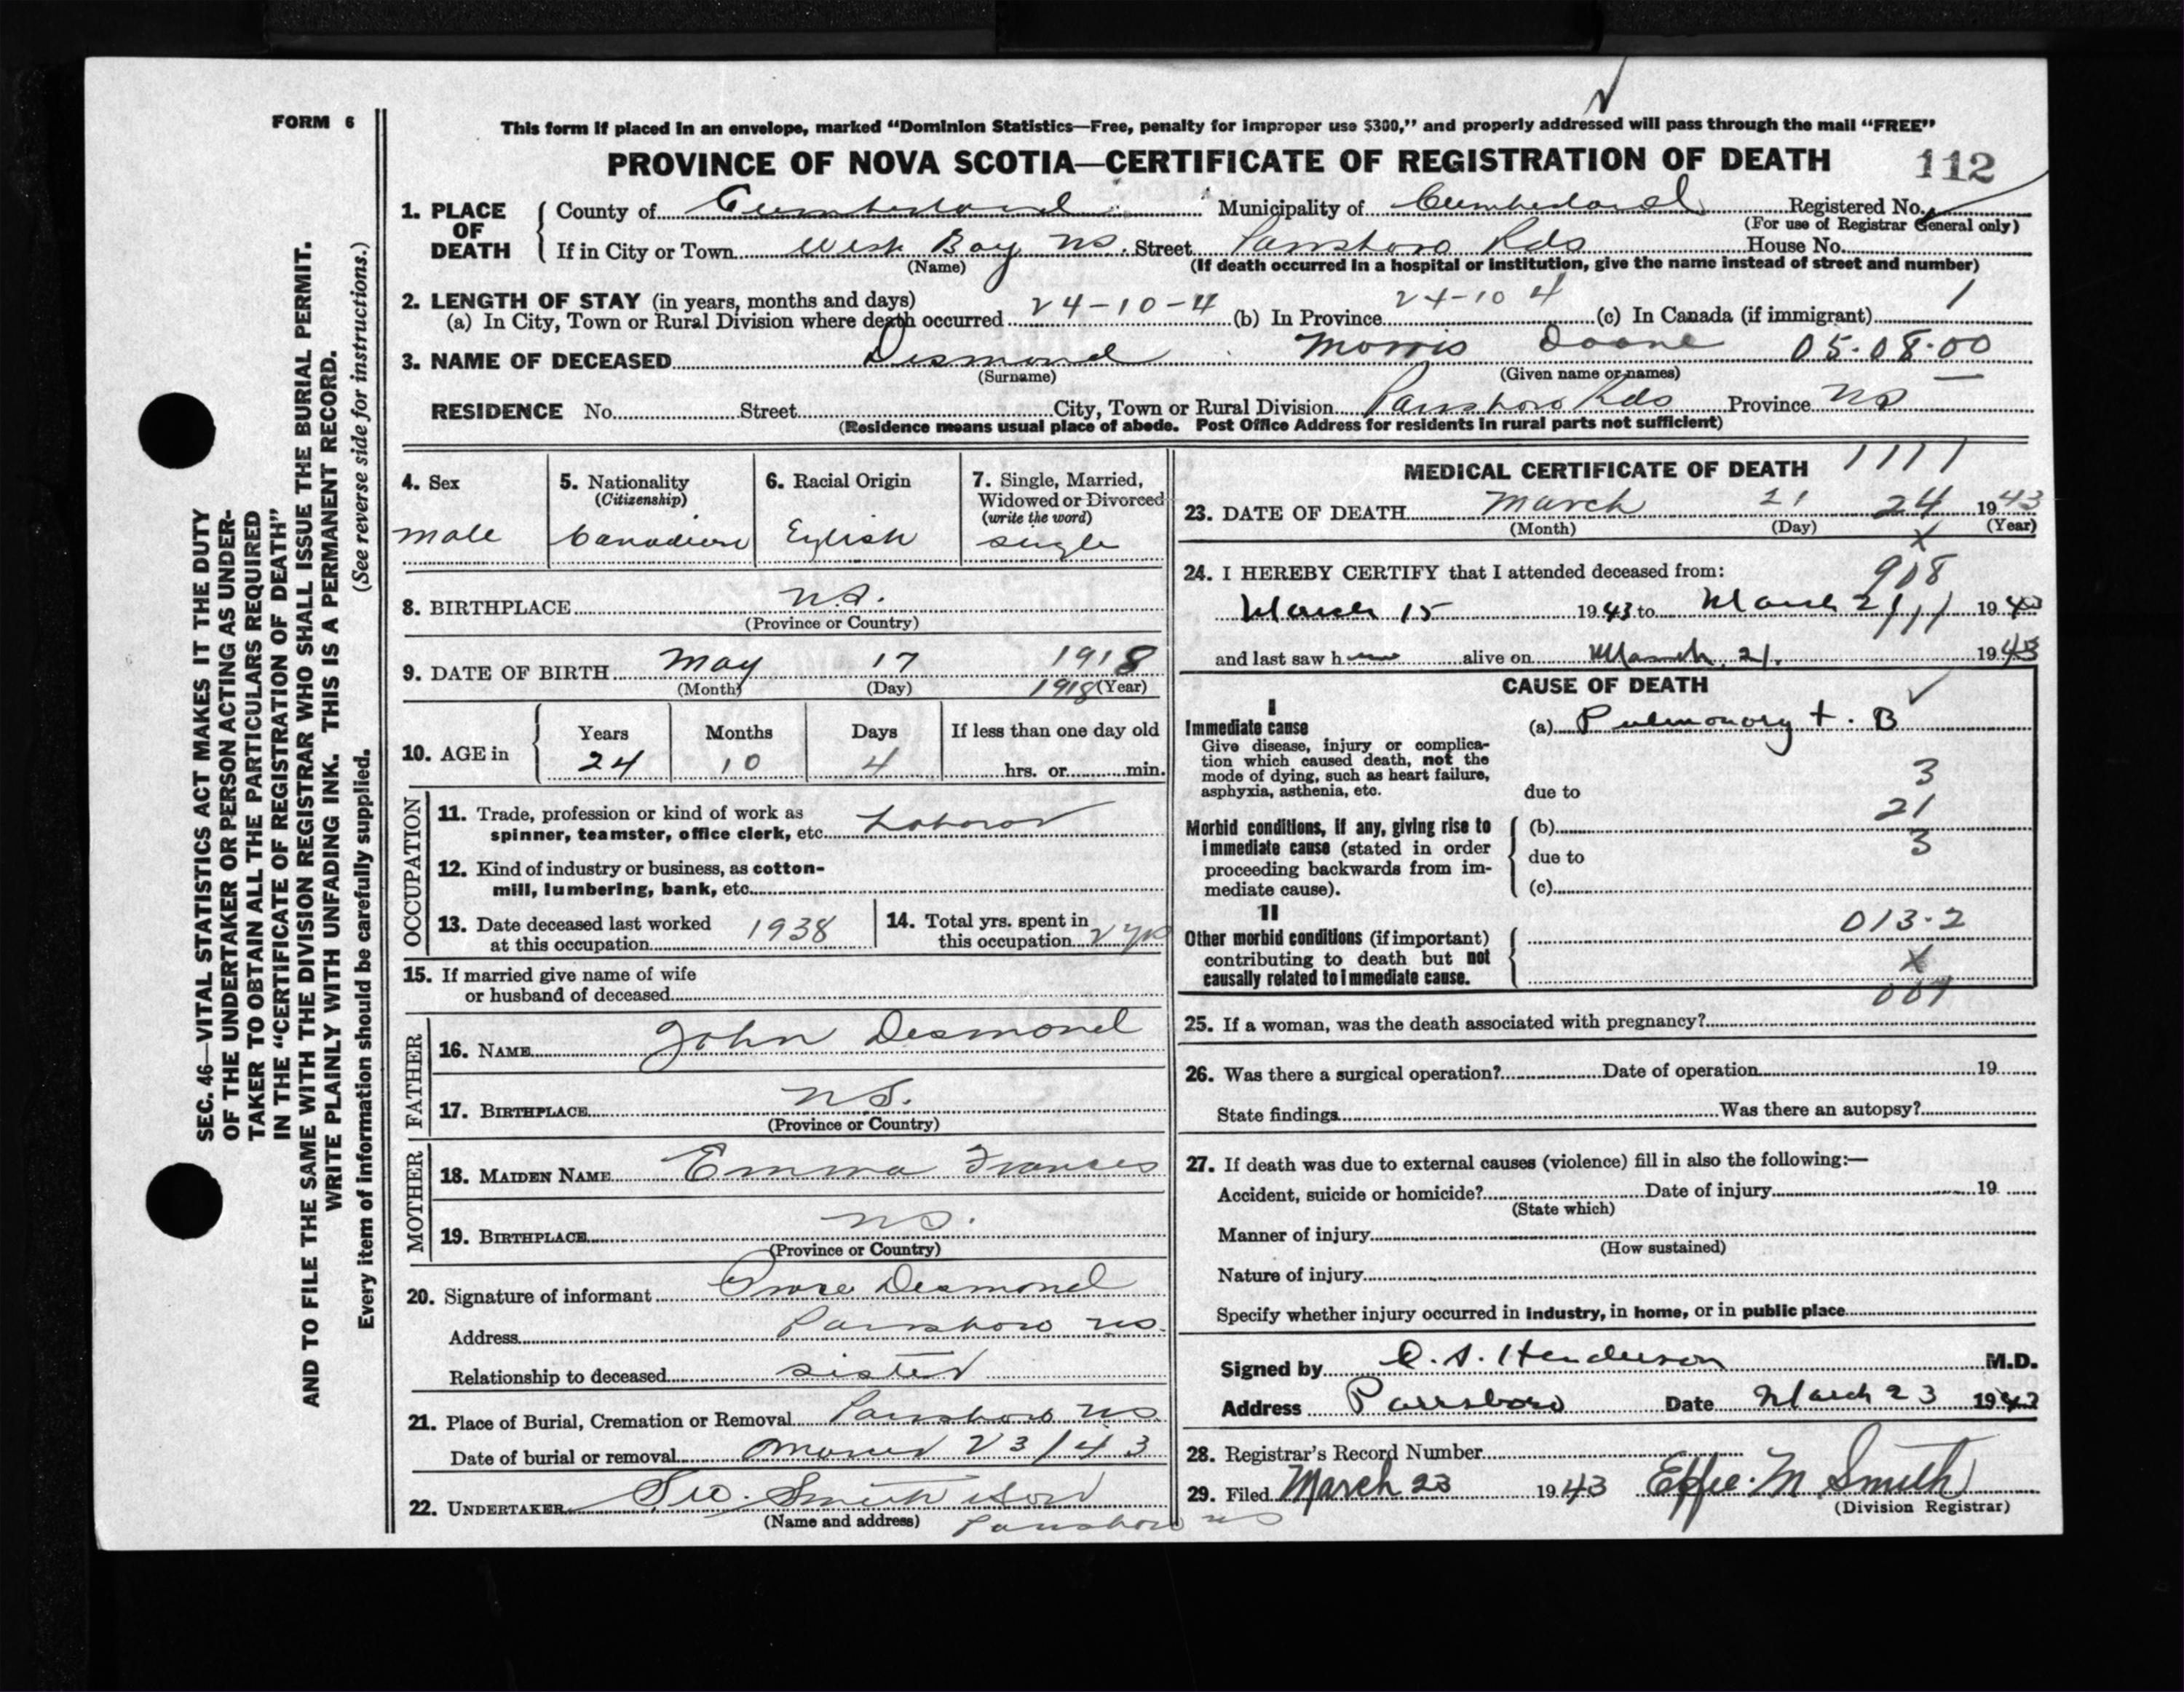 FORM 6
This form if placed in an envelope, marked “Dominion Statistics—Free, penalty for improper use $300,” and properly addressed will pass through the mail “FREE”
PROVINCE OF NOVA SCOTIA—CERTIFICATE OF REGISTRATION OF DEATH 112
1. PLACE OF DEATH County of Cumberland Municipality of Cumberland Registered No.
(For use of Registrar General only)
If in City or Town West Bay NS. Street Parrsboro Rds House No.
(Name) (If death occurred in a hospital or institution, give the name instead of street and number)
2. LENGTH OF STAY (in years, months and days)
(a) In City, Town or Rural Division where death occurred 24-10-4 (b) In Province 24-10 4 (c) In Canada (if immigrant) 1
3. NAME OF DECEASED Desmond Morris Doane 05.08.00
(Surname) (Given name or names)
RESIDENCE No. Street City, Town or Rural Division Parrsboro Rds Province NS
(Residence means usual place of abode. Post Office Address for residents in rural parts not sufficient)
4. Sex male
5. Nationality (Citizenship) Canadian
6. Racial Origin English
7. Single, Married, Widowed or Divorced (write the word) single
8. BIRTHPLACE N.S.
(Province or Country)
9. DATE OF BIRTH May 17 1918
(Month) (Day) 1918 (Year)
10. AGE in Years 24 Months 10 Days 4 If less than one day old hrs. or min.
OCCUPATION
11. Trade, profession or kind of work as
spinner, teamster, office clerk, etc. Laborer
12. Kind of industry or business, as cotton-
mill, lumbering, bank, etc.
13. Date deceased last worked
at this occupation 1938
14. Total yrs. spent in
this occupation 2 yrs
15. If married give name of wife
or husband of deceased
FATHER
16. NAME John Desmond
17. BIRTHPLACE NS.
(Province or Country)
MOTHER
18. MAIDEN NAME Emma Frances
19. BIRTHPLACE NS.
(Province or Country)
20. Signature of informant Desmond
Address Parrsboro NS.
Relationship to deceased sister
21. Place of Burial, Cremation or Removal Parrsboro NS
Date of burial or removal March 23/43
22. UNDERTAKER Geo. Smith & Son
(Name and address) Parrsboro NS
MEDICAL CERTIFICATE OF DEATH 1111
23. DATE OF DEATH March 21 24 1943
(Month) (Day) (Year)
X
24. I HEREBY CERTIFY that I attended deceased from: 908
March 15 1943 to March 21 1943
and last saw him alive on March 21. 1943
CAUSE OF DEATH
I
Immediate cause (a) Pulmonary t. B
Give disease, injury or complica-
tion which caused death, not the
mode of dying, such as heart failure,
asphyxia, asthenia, etc.
due to 3
21
Morbid conditions, if any, giving rise to
immediate cause (stated in order
proceeding backwards from im-
mediate cause).
(b)
due to 3
(c)
II
Other morbid conditions (if important)
contributing to death but not
causally related to immediate cause.
013.2
X
007
25. If a woman, was the death associated with pregnancy?
26. Was there a surgical operation? Date of operation 19
State findings Was there an autopsy?
27. If death was due to external causes (violence) fill in also the following:—
Accident, suicide or homicide? Date of injury 19
(State which)
Manner of injury
(How sustained)
Nature of injury
Specify whether injury occurred in industry, in home, or in public place
Signed by Henderson M.D.
Address Parrsboro Date March 23 1943
28. Registrar's Record Number
29. Filed March 23 1943 Effie. M Smith
(Division Registrar)
SEC. 46—VITAL STATISTICS ACT MAKES IT THE DUTY
OF THE UNDERTAKER OR PERSON ACTING AS UNDER-
TAKER TO OBTAIN ALL THE PARTICULARS REQUIRED
IN THE “CERTIFICATE OF REGISTRATION OF DEATH”
AND TO FILE THE SAME WITH THE DIVISION REGISTRAR WHO SHALL ISSUE THE BURIAL PERMIT.
WRITE PLAINLY WITH UNFADING INK. THIS IS A PERMANENT RECORD.
Every item of information should be carefully supplied. (See reverse side for instructions.)